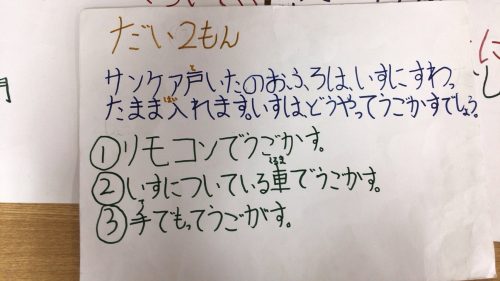 だい2もん
サンケア戸いたのおふろは、いすにすわっ
たまま入れます。いすは、どうやってうごかすでしょう。
①リモコンでうごかす。
②いすについている車でうごかす。
③手でもってうごがす。